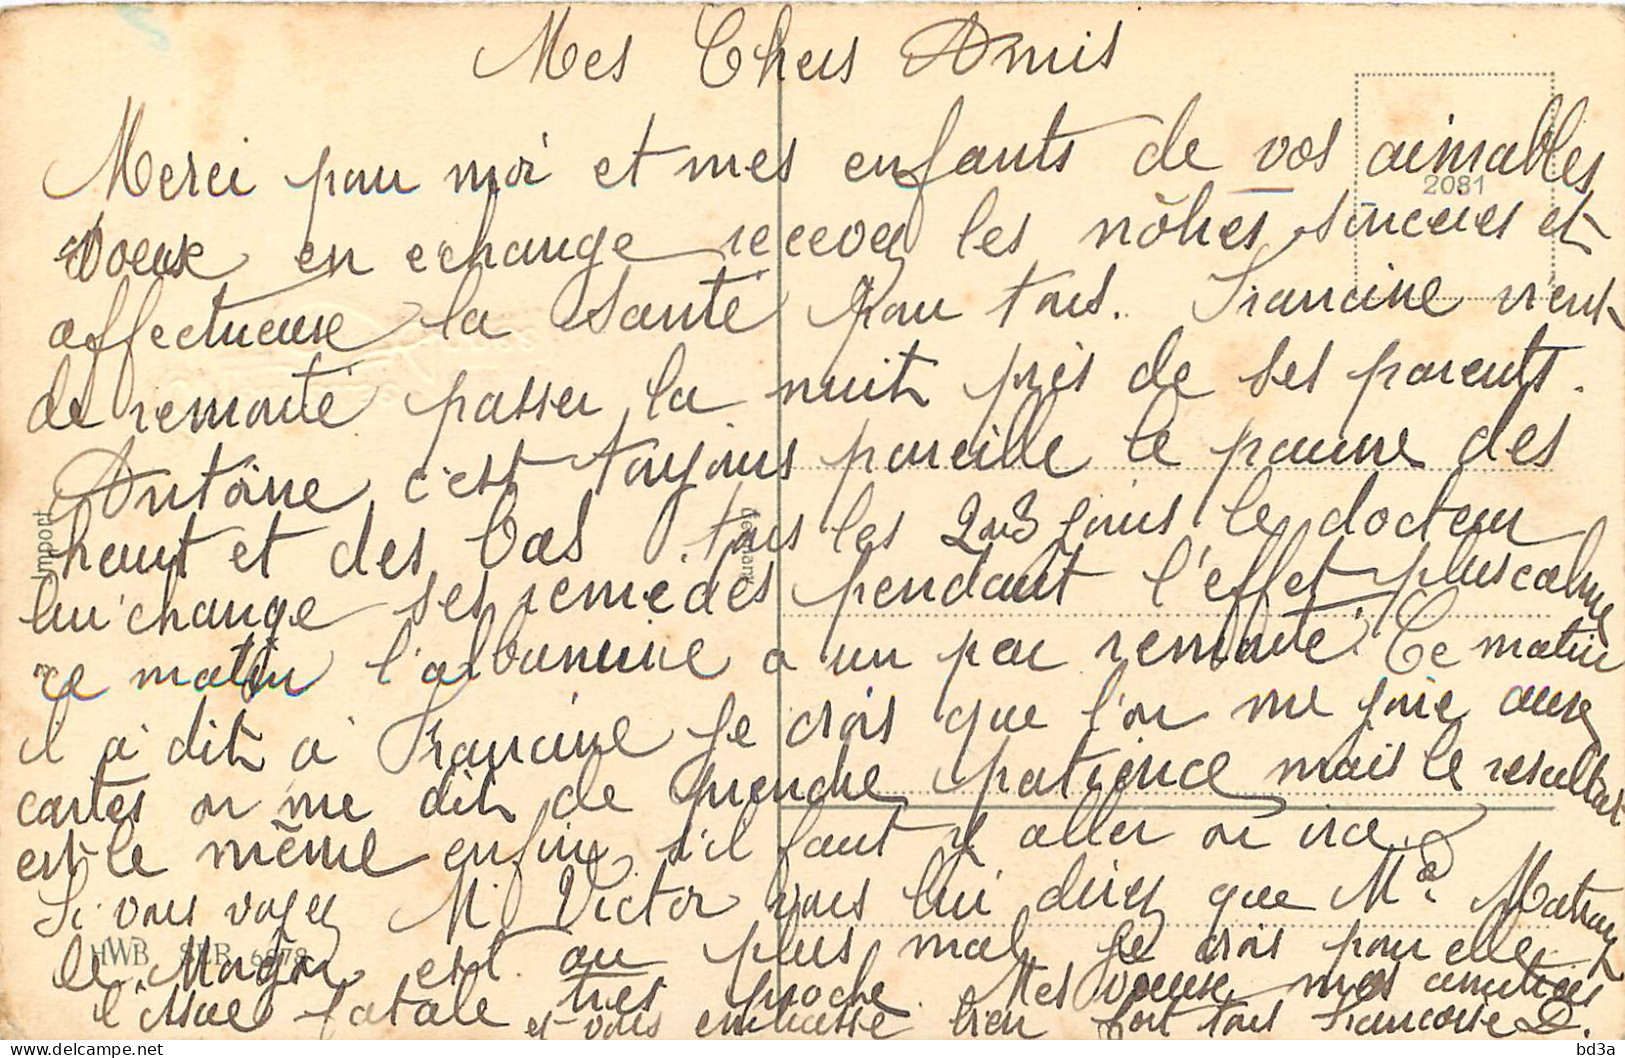 Mes Chers Amis
Merci pour moi et mes enfants de vos aimables
2081
Voeux en echange recevez les nôtres sinceres et
affectueuse la santé pour tous. Francine vient
de remonté passer la nuit près de ses parents.
Antoine c'est toujours pareille le pauvre des
Import
Germany
haut et des bas tous les 2 ou 3 jours le docteur
lui change ses remedes pendant l'effet plus calme
ce matin l'albumine a un peu remonté. Ce matin
il a dit à Francine je crois que l'on me joue aux
cartes on me dit de prendre patience mais le resultat
est le même enfin s'il faut y aller on ira.
Si vous voyez M. Victor vous lui direz que Md.
HWB SER 6078
le est au plus mal je crois pour elle
l'issue fatale très proche. Mes voeux mes amitiés
et vous embrasse bien fort tous Francoise D.
bd3a